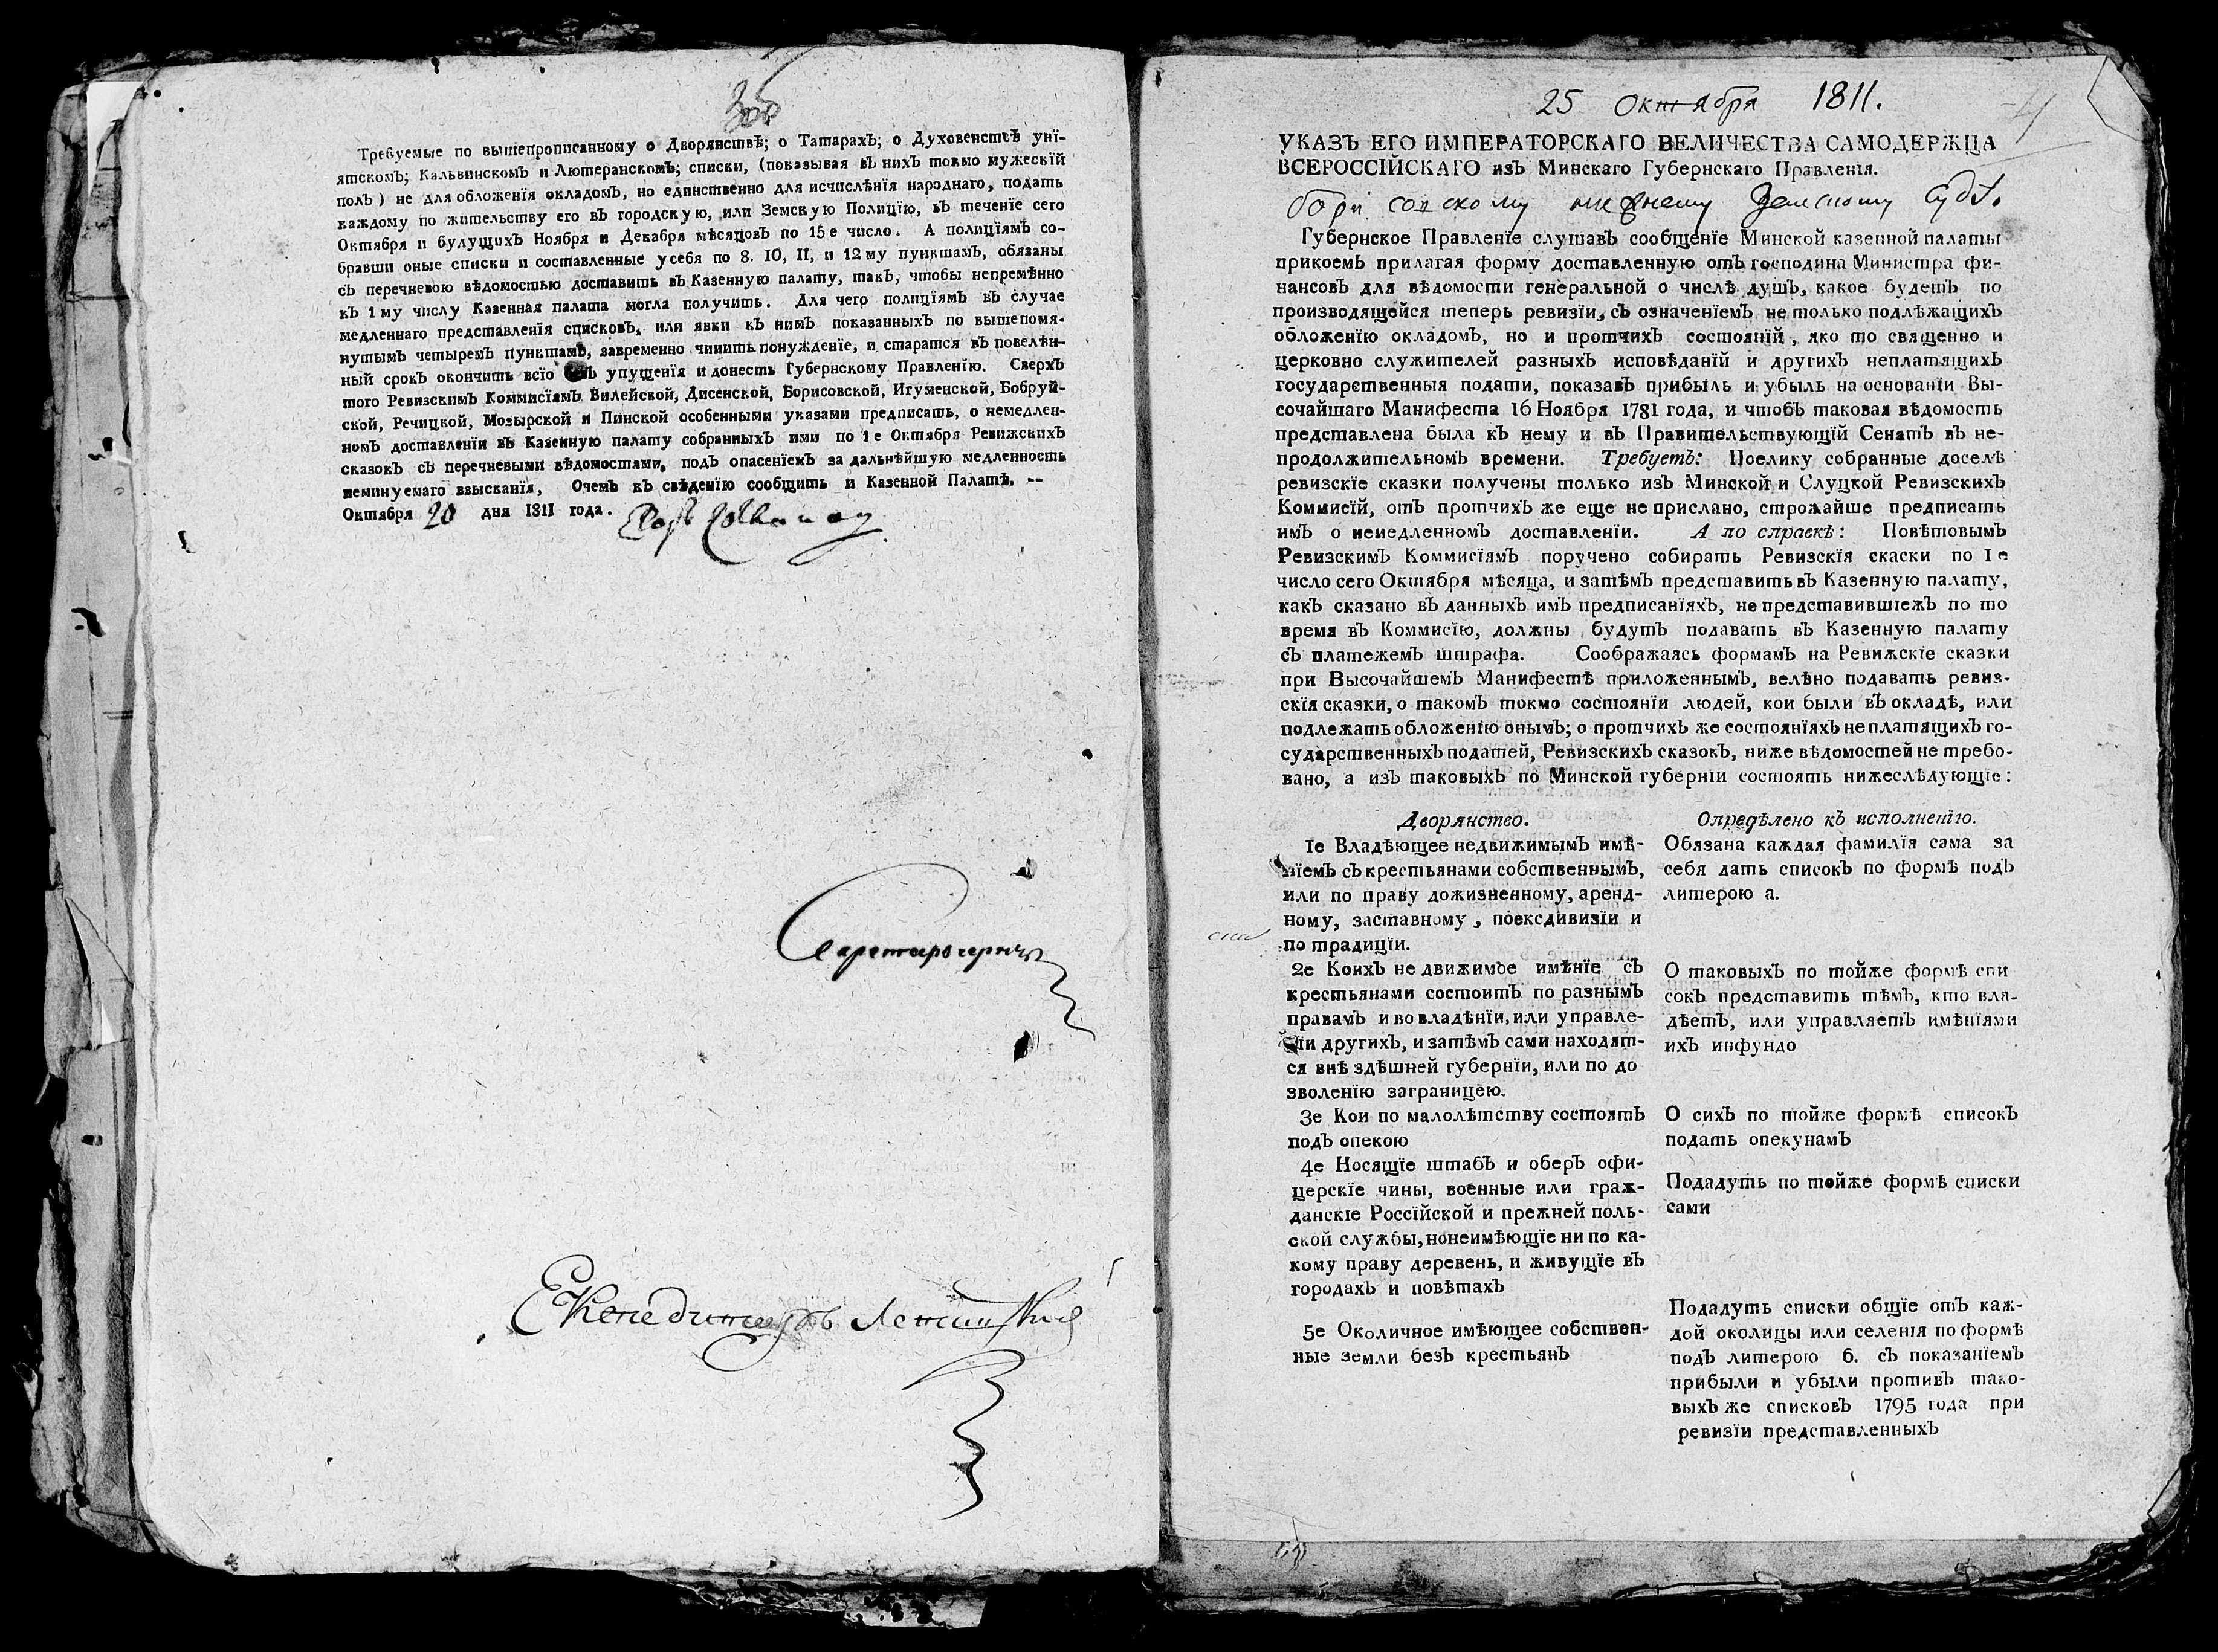 Требуемые по вышепрописанному о Дворянствѣ; о Татарахъ; о Духовенствѣ унї-
ятскомъ; Кальвинскомъ и Лютеранскомъ; списки, (показывая въ нихъ токмо мужескїй
полъ) не для обложенїя окладомъ, но единственно для исчислѣнїя народнаго, подать
каждому по жительству его въ городскую, или Земскую Полицїю, въ теченїе сего
Октября и будущихъ Ноября и Декабря мѣсяцовъ по 15е число. А полицїямъ со-
бравши оные списки и составленные у себя по 8. 10, 11, и 12му пунктамъ, обязаны
съ перечневою вѣдомостью доставить въ Казенную палату, такъ, чтобы непремѣнно
къ 1му числу Казенная палата могла получить. Для чего полицїямъ въ случае
медленнаго представленїя списковъ, или явки къ нимъ показанныхъ по вышепомя-
нутымъ четыремъ пунктамъ, завременно чинить понужденїе, и старатся въ повелѣн-
ный срокъ окончить всїо упущенїя и донесть Губернскому Правленїю. Сверхъ
того Ревизскимъ Коммисїямъ Вилейской, Дисенской, Борисовской, Игуменской, Бобруй-
ской, Речицкой, Мозырской и Пинской особенными указами предписать, о немедлен-
номъ доставленїи въ Казенную палату собранныхъ ими по 1е Октября Ревижскихъ
сказокъ съ перечневыми вѣдомостями, подъ опасенїемъ за дальнѣйшую медленность
неминуемаго взысканїя, Очемъ къ свѣденїю сообщить и Казенной Палатѣ. --
Октября 20 дня 1811 года.
25 октября 1811.
УКАЗЪ ЕГО ИМПЕРАТОРСКАГО ВЕЛИЧЕСТВА САМОДЕРЖЦА
ВСЕРОССІЙСКАГО изъ Минскаго Губернскаго Правленія.
Борисовскому нижнему Земскому Суду.
Губернское Правленїе слушавъ сообщенїе Минской казенной палаты
прикоемъ прилагая форму доставленную отъ господина Министра фи-
нансовъ для вѣдомости генеральной о числѣ душъ, какое будетъ по
производящейся теперь ревизїи, съ означенїемъ не только подлѣжащихъ
обложенію окладомъ, но и протчихъ состоянїй, яко то священно и
церковно служителей разныхъ исповѣданїй и другихъ неплатящихъ
государственныя подати, показавъ прибыль и убыль на основанїи Вы-
сочайшаго Манифеста 16 Ноября 1781 года, и чтобъ таковая вѣдомость
представлена была къ нему и въ Правительствующїй Сенатъ въ не-
продолжительномъ времени. Требуетъ: Поелику собранные доселѣ
ревизскїе сказки получены только изъ Минской и Слуцкой Ревизскихъ
Коммисїй, отъ протчихъ же еще не прислано, строжайше предписать
имъ о немедленномъ доставленїи. А по справкѣ: Повѣтовымъ
Ревизскимъ Коммисїямъ поручено собирать Ревизскїя скаски по 1е
число сего Октября мѣсяца, и затѣмъ представить въ Казенную палату,
какъ сказано въ данныхъ имъ предписанїяхъ, не представившїежъ по то
время въ Коммисїю, должны будутъ подавать въ Казенную палату
съ платежемъ штрафа. Соображаясь формамъ на Ревижскїе сказки
при Высочайшемъ Манифестѣ приложеннымъ, велѣно подавать ревиз-
скїя сказки, о такомъ токмо состоянїи людей, кои были въ окладѣ, или
подлежать обложенїю онымъ; о протчихъ же состоянїяхъ не платящихъ го-
сударственныхъ податей, Ревизскихъ сказокъ, ниже вѣдомостей не требо-
вано, а изъ таковыхъ по Минской губернїи состоять нижеслѣдующїе:
Дворянство.
1е Владѣющее недвижимымъ имѣ-
нїемъ съ крестьянами собственнымъ,
или по праву дожизненному, аренд-
ному, заставному, поексдивизїи и
по традицїи.
2е Коихъ не движимое имѣнїе съ
крестьянами состоитъ по разнымъ
правамъ и во владѣнїи, или управле-
нїи другихъ, и затѣмъ сами находят-
ся внѣ здѣшней губернїи, или по до
зволенїю заграницею.
3е Кои по малолѣтству состоять
подъ опекою
4е Носящїе штабъ и оберъ офи-
церскїе чины, военные или граж-
данскїе Россїйской и прежней поль-
ской службы, нонеимѣющїе ни по ка-
кому праву деревень, и живущїе въ
городахъ и повѣтахъ
5е Околичное имѣющее собствен-
ные земли безъ крестьянъ
Опредѣлено къ исполненїю.
Обязана каждая фамилїя сама за
себя дать списокъ по формѣ подъ
литерою а.
О таковыхъ по тойже формѣ спи
сокъ представить тѣмъ, кто вла-
дѣетъ, или управляетъ имѣнїями
ихъ инфундо
О сихъ по тойже формѣ списокъ
подать опекунамъ
Подадуть по тойже формѣ списки
сами
Подадуть списки общїе отъ каж-
дой околицы или селенія по формѣ
подъ литерою б. съ показанїемъ
прибыли и убыли противъ тако-
выхъ же списковъ 1795 года при
ревизїи представленныхъ